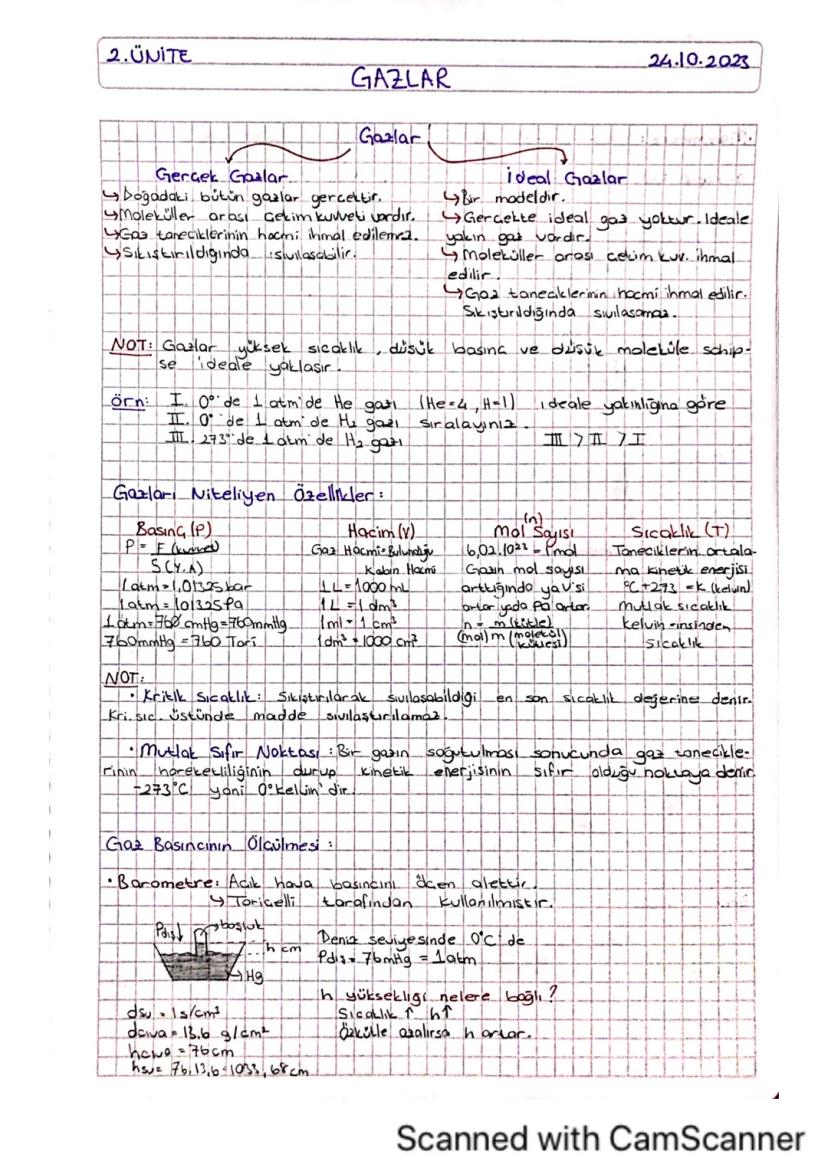 2.ÜNİTE
24.10.2023
GAZLAR
Gazlar
Gerçek Gazlar
↳ Doğadaki bütün gazlar gerçektir.
↳ Moleküller arası çekim kuvveti vardır.
↳ Gaz taneciklerinin hacmi ihmal edilemez.
↳ Sıkıştırıldığında sıvılaşabilir.
İdeal Gazlar
↳ Bir modeldir.
↳ Gerçekte ideal gaz yoktur. İdeale
yakın gaz vardır.
↳ Moleküller arası çekim kuv. ihmal
edilir.
↳ Gaz taneciklerinin hacmi ihmal edilir.
Sıkıştırıldığında sıvılaşamaz.
NOT: Gazlar yüksek sıcaklık, düşük basınç ve düşük moleküle sahip-
se ideale yaklaşır.
örn: I. 0° de 1 atm'de He gazı (He=4, H=1) ideale yakınlığına göre
II. 0° de 1 atm'de H₂ gazı sıralayınız.
III. 273° de 1 atm'de H₂ gazı III > II > I
Gazları Niteliyen Özellikler:
Basınç (P)
P = F (kuvvet)
S (Y.A)
1 atm = 1,01325 bar
1 atm = 101325 Pa
1 atm = 760 cmHg = 760mmHg
760mmHg = 760 Tori
Hacim (V)
Gaz Hacmi = Bulunduğu
Kabın Hacmi
1L = 1000 mL
1L = 1 dm³
1ml = 1 cm³
1dm³ = 1000 cm³
(n)
Mol Sayısı
6,02.10²³ = 1 mol
Gazın mol sayısı
arttığında ya V'si
artar yada P'a artar.
n = m (kütle)
(mol) m (molekül
kütlesi)
Sıcaklık (T)
Taneciklerin ortala-
ma kinetik enerjisi
°C + 273 = K (kelvin)
mutlak sıcaklık
kelvin cinsinden
sıcaklık
NOT:
• Kritik Sıcaklık: Sıkıştırılarak sıvılaşabildiği en son sıcaklık değerine denir.
Kri. sıc. üstünde madde sıvılaştırılamaz.
• Mutlak Sıfır Noktası: Bir gazın soğutulması sonucunda gaz tanecikle-
rinin hareketliliğinin durup kinetik enerjisinin sıfır olduğu noktaya denir.
-273°C yani 0° kelvin'dir.
Gaz Basıncının Ölçülmesi:
• Barometre: Açık hava basıncını ölçen alettir.
↳ Toriçelli tarafından kullanılmıştır.
Pdış↓
boşluk
h cm
Hg
Deniz seviyesinde 0°C de
Pdış = 76mHg = 1 atm
h yüksekliği nelere bağlı?
Sıcaklık ↑ h↑
Özkütle azalırsa h artar.
dsu = 1 s/cm³
dcıva = 13,6 g/cm²
hcıva = 76 cm
hsu = 76.13,6 = 1033,68 cm
Scanned with CamScanner